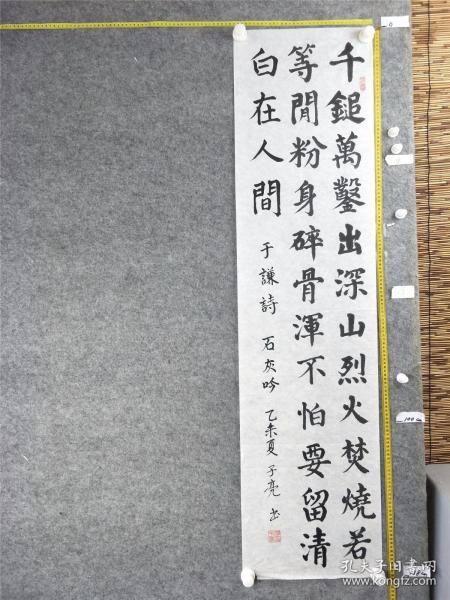 千鎚萬鑿出深山烈火焚燒若
等閒粉身碎骨渾不怕要留清
白在人間
于謙詩 石灰吟 乙未夏 子亮書
孔夫子旧書网
kongfz.com